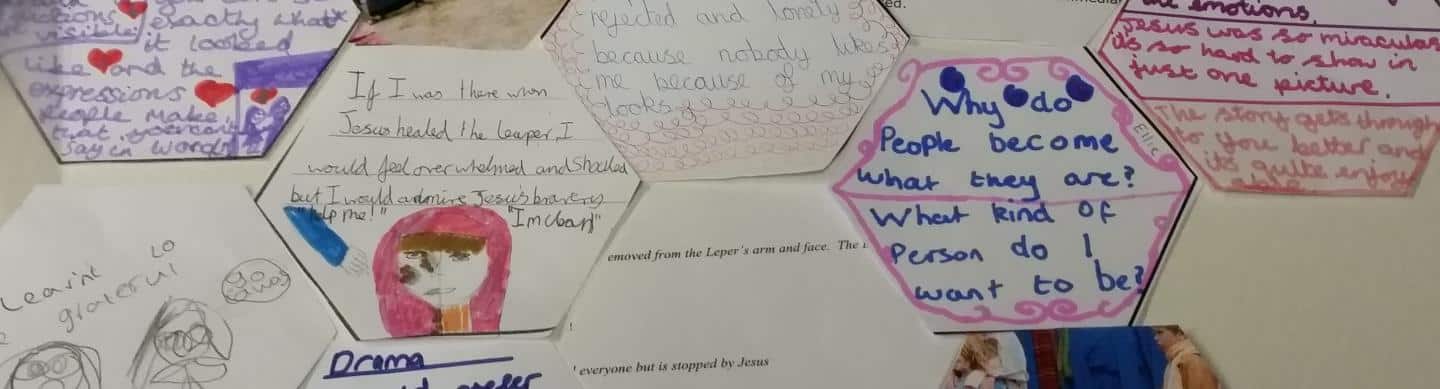 exactly what
visible, it looked
like and the
expressions
People make
that you can't
say in words
If I was there when
Jesus healed the leaper, I
would feel overwhelmed and shocked
but I would admire Jesus's bravery
"help me!" "Im clean"
rejected and lonely
because nobody likes
me because of my
looks
ed.
Why do
People become
what they are?
What kind of
Person do I
want to be?
Ellie
emotions.
Jesus was so miraculas
its so hard to show in
just one picture.
The story gets through
to you better and
its quite enjoy
Learnt to
grateful
emoved from the Leper's arm and face. The
everyone but is stopped by Jesus
Drama